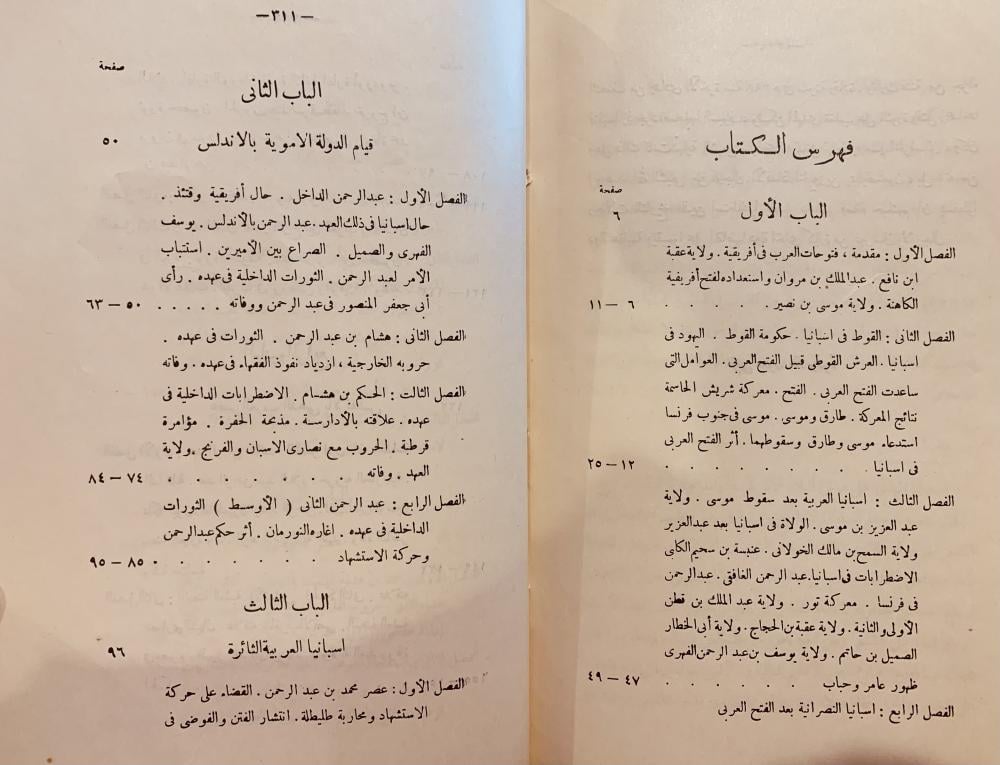 فهرس الكتاب
صفحة
الباب الأول ٦
الفصل الأول : مقدمة ، فتوحات العرب فى أفريقية . ولاية عقبة
ابن نافع . عبدالملك بن مروان واستعداده لفتح أفريقية
الكاهنة . ولاية موسى بن نصير . . . . . ٦ — ١١
الفصل الثانى : القوط فى اسبانيا . حكومة القوط . اليهود فى
اسبانيا . العرش القوطى قبيل الفتح العربى . العوامل التى
ساعدت الفتح العربى . الفتح . معركة شريش الحاسمة
نتائج المعركة . طارق وموسى . موسى فى جنوب فرنسا
استدعاء موسى وطارق وسقوطهما . أثر الفتح العربى
فى اسبانيا . . . . . . . . ١٢ — ٢٥
الفصل الثالث : اسبانيا العربية بعد سقوط موسى . ولاية
عبد العزيز بن موسى . الولاة فى اسبانيا بعد عبدالعزيز
ولاية السمح بن مالك الخولانى . عنبسة بن سحيم الكلبى
الاضطرابات فى اسبانيا . عبد الرحمن الغافقى . عبدالرحمن
فى فرنسا . معركة تور . ولاية عبد الملك بن قطن
الأولى والثانية . ولاية عقبة بن الحجاج . ولاية أبى الخطار
الصميل بن حاتم . ولاية يوسف بن عبد الرحمن الفهرى
ظهور عامر وحباب . . . . . . ٤٧ — ٤٩
الفصل الرابع : اسبانيا النصرانية بعد الفتح العربى
— ٣١١ —
صفحة
الباب الثانى
قيام الدولة الاموية بالاندلس ٥٠
الفصل الأول : عبدالرحمن الداخل . حال أفريقية وقتئذ .
حال اسبانيا فى ذلك العهد . عبد الرحمن بالأندلس . يوسف
الفهرى والصميل . الصراع بين الأميرين . استتباب
الأمر لعبد الرحمن . الثورات الداخلية فى عهده . رأى
أبى جعفر المنصور فى عبد الرحمن ووفاته . . . . . ٥٠ — ٦٣
الفصل الثانى : هشام بن عبد الرحمن . الثورات فى عهده .
حروبه الخارجية ، ازدياد نفوذ الفقهاء فى عهده . وفاته
الفصل الثالث : الحكم بن هشام . الاضطرابات الداخلية فى
عهده . علاقته بالأدارسة . مذبحة الحفرة . مؤامرة
قرطبة . الحروب مع نصارى الاسبان والفرنج . ولاية
العهد . وفاته . . . . . . . ٧٤ — ٨٤
الفصل الرابع : عبد الرحمن الثانى ( الأوسط ) الثورات
الداخلية فى عهده . اغاره النورمان . أثر حكم عبدالرحمن
وحركة الاستشهاد . . . . . . . ٨٥ — ٩٥
الباب الثالث
اسبانيا العربية الثائرة ٩٦
الفصل الأول : عصر محمد بن عبد الرحمن . القضاء على حركة
الاستشهاد ومحاربة طليطلة . انتشار الفتن والفوضى فى